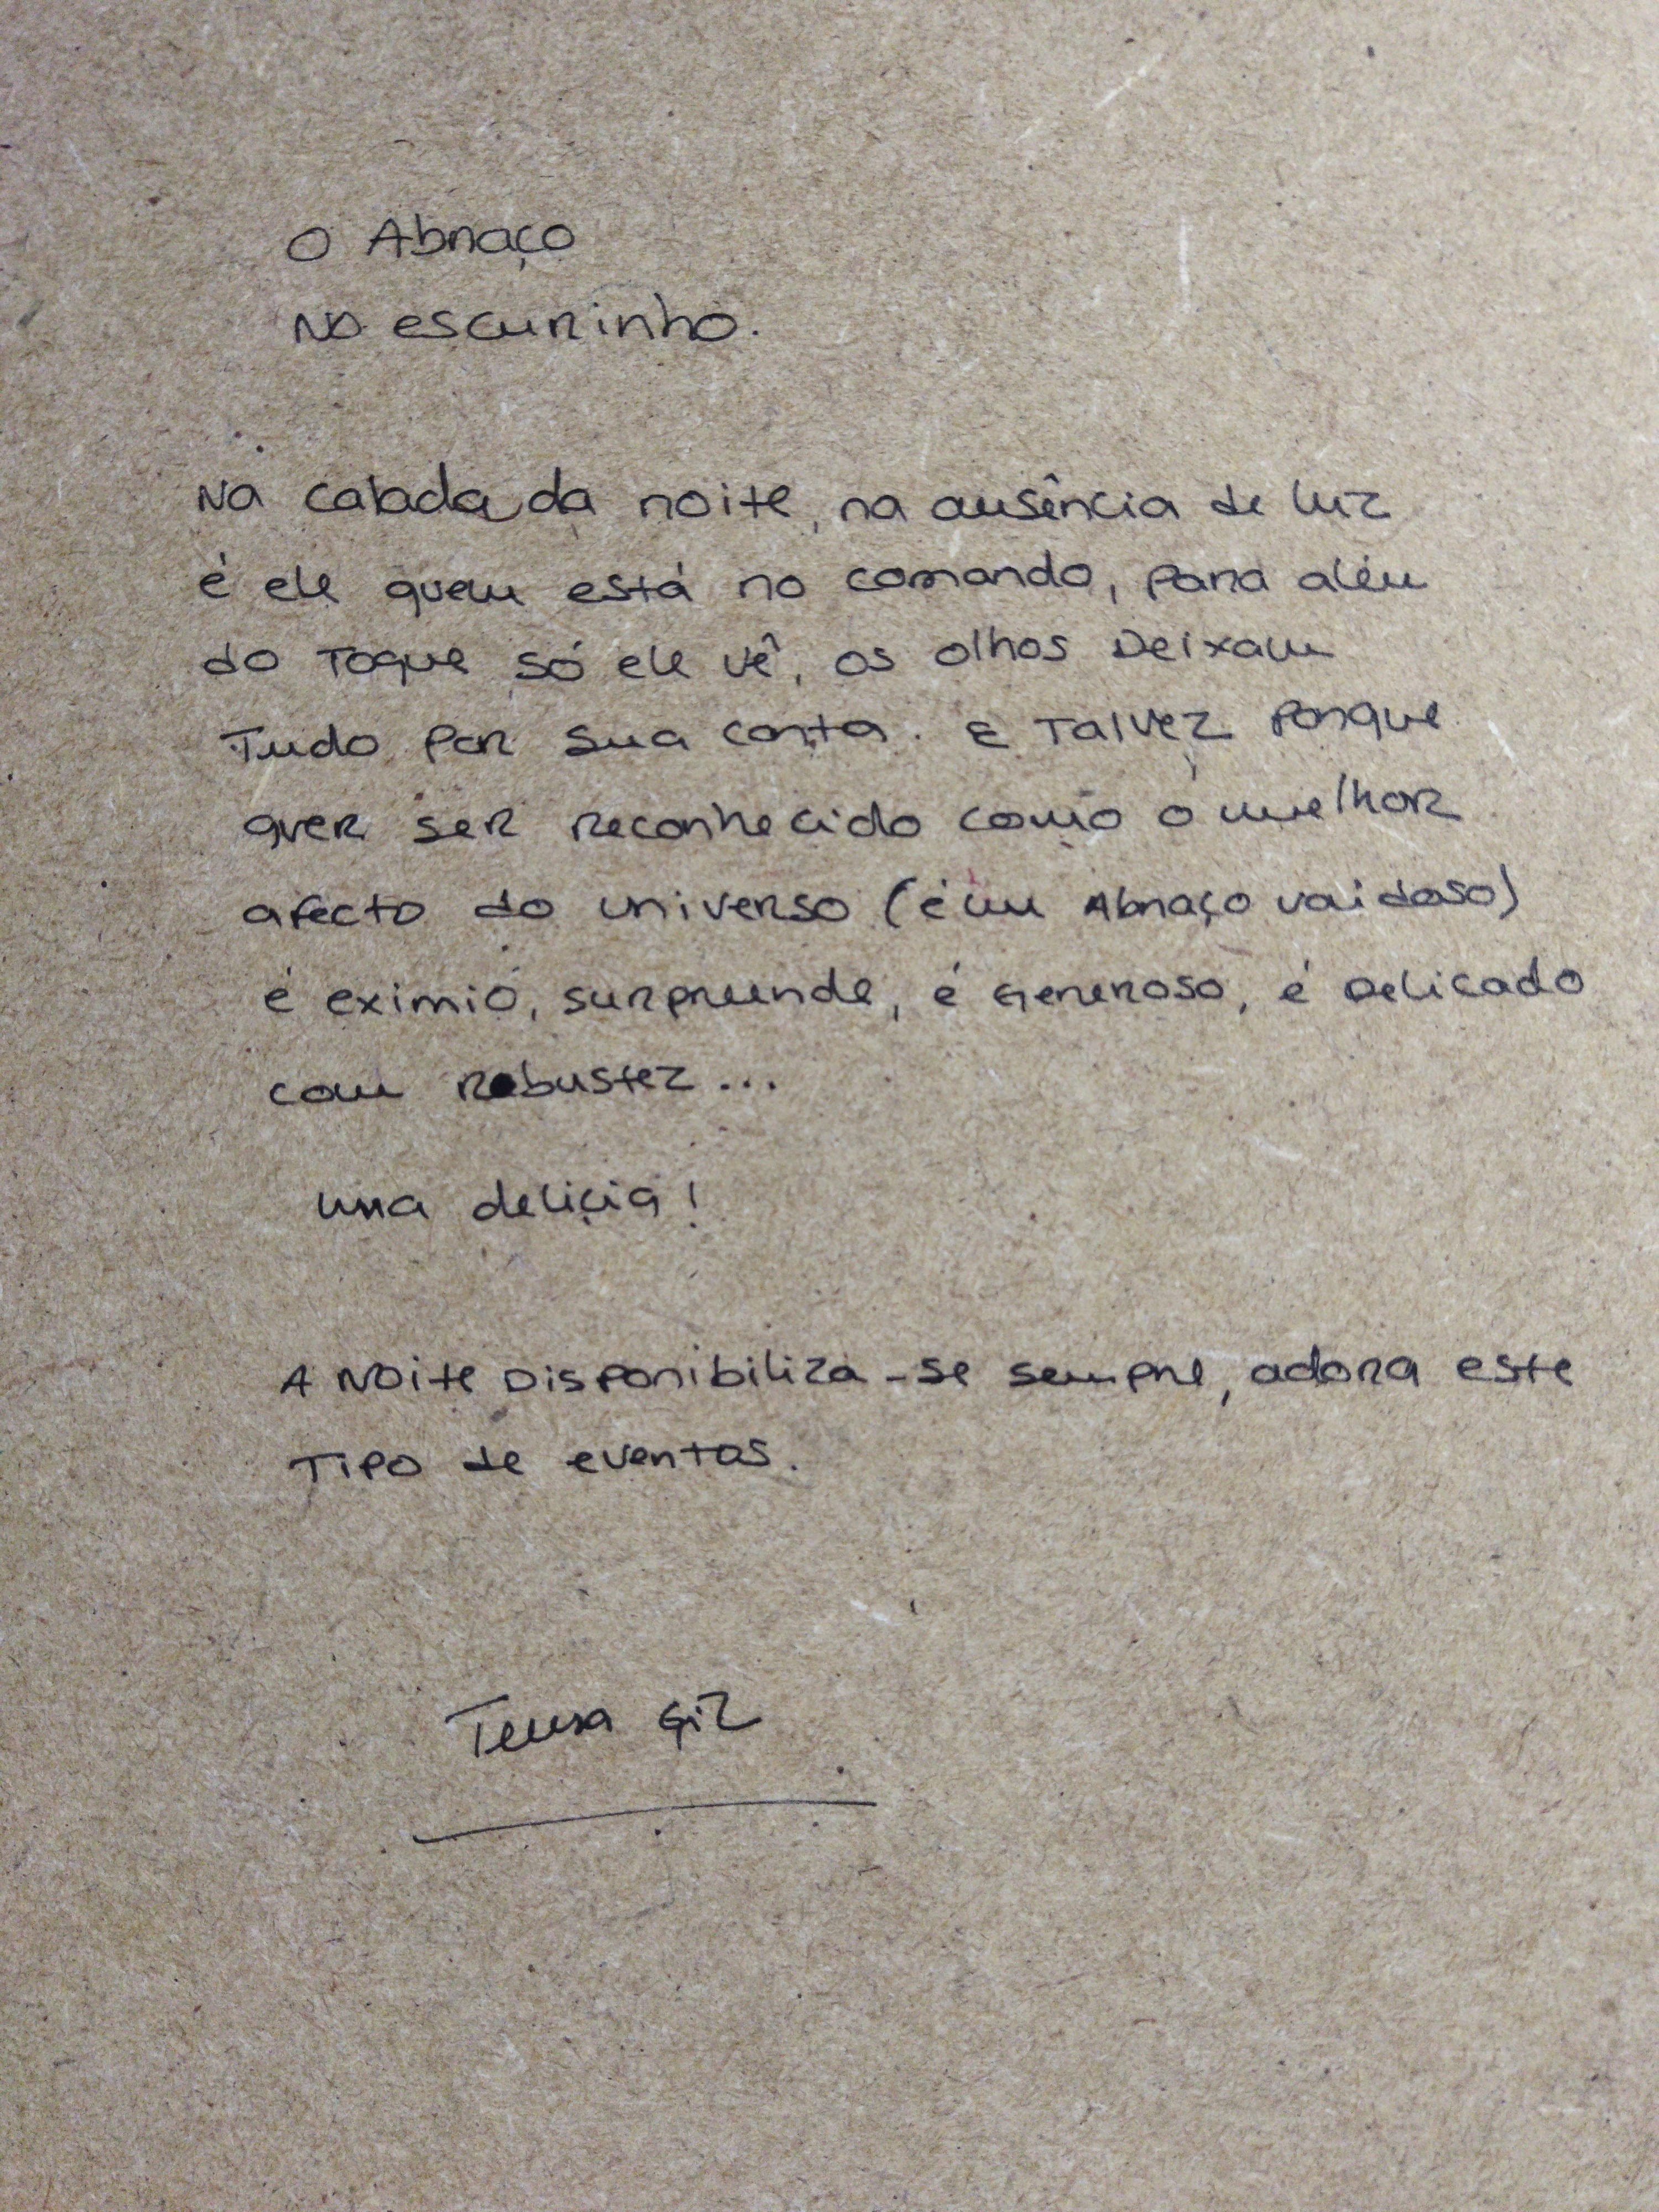 O Abraço
no escurinho.
Na calada da noite, na ausência de luz
é ele quem está no comando, para além
do toque só ele vê, os olhos deixam
tudo por sua conta. E talvez porque
quer ser reconhecido como o melhor
afecto do universo (é um Abraço vaidoso)
é exímio, surpreende, é generoso, é delicado
com robustez...
uma delícia!
A noite disponibiliza-se sempre, adora este
tipo de eventos.
Gil